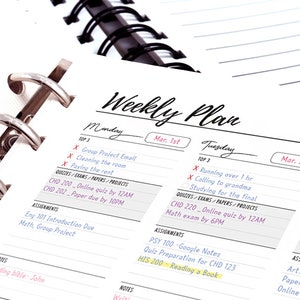 Weekly Plan
Monday
Mar. 1st
TOP 3
X Group Project Email
X Cleaning the room
X Paying the rent
QUIZZES / EXAMS / PAPERS / PROJECTS
CHD 220 , Online quiz by 12AM
CHD 202 , Paper due by 10PM
ASSIGNMENTS
Eng 101 Introduction Due
Math, Group Project
NOTES
Tuesday
Mar.
TOP 3
X Running over 1 hr
X Calling to grandma
Studying for the final
QUIZZES / EXAMS / PAPERS / PROJECTS
CHD 220 , Online quiz by 12AM
Math exam by 6PM
ASSIGNMENTS
PSY 100 -Google Notes
Quiz Preparation for CHD 123
HIS 200 - Reading a Book
NOTES